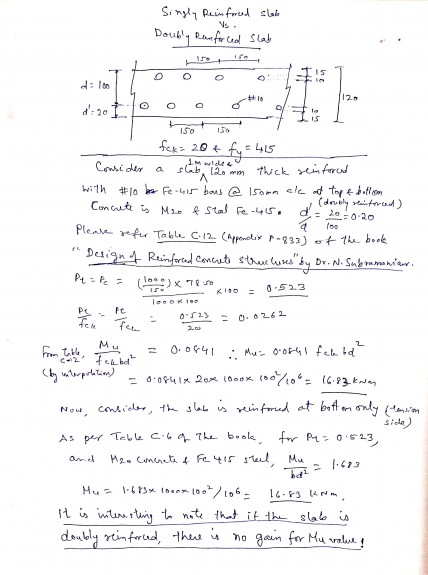 Singly Reinforced slab
Vs.
Doubly Reinforced Slab
150 150
d = 100
d' = 20
15
10
120
#10
10
15
150 150
fck = 20 & fy = 415
Consider a 1m wide & slab 120 mm thick reinforced
with #10 Fe-415 bars @ 150mm c/c at top & bottom
(doubly reinforced)
Concrete is M20 & Steel Fe-415. d'/d = 20/100 = 0.20
Please refer Table C.12 (Appendix P-833) of the book
"Design of Reinforced Concrete Structures" by Dr. N. Subramanian.
Pt = Pc = (1000/150) x 78.50 / 1000 x 100 x 100 = 0.523
Pt/fck = Pc/fck = 0.523/20 = 0.0262
From table C-12, Mu/fck bd² = 0.0841 ∴ Mu = 0.0841 fck bd²
(by interpolation) = 0.0841 x 20 x 1000 x 100²/10⁶ = 16.82 kNm
Now, consider, the slab is reinforced at bottom only (tension side)
As per Table C-6 of the book, for Pt = 0.523,
and M20 concrete & Fe 415 steel, Mu/bd² = 1.683
Mu = 1.683 x 1000 x 100²/10⁶ = 16.83 kNm.
It is interesting to note that if the slab is
doubly reinforced, there is no gain for Mu value!